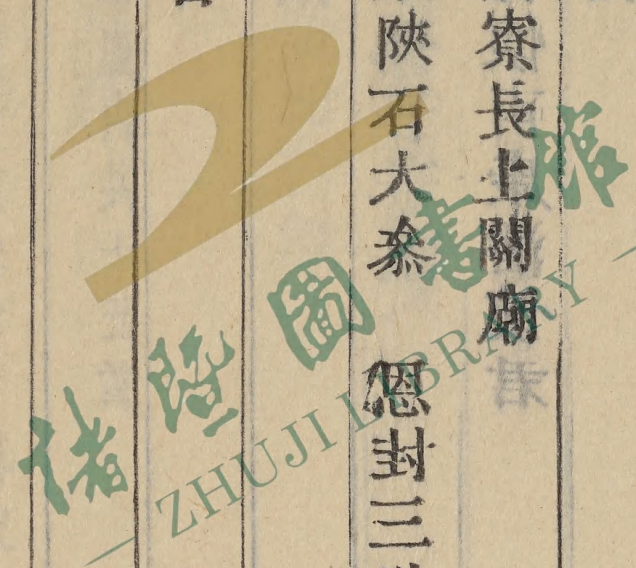 寮長上關廟
陝石大叅 恩封三
諸暨圖書館
— ZHUJI LIBRARY —